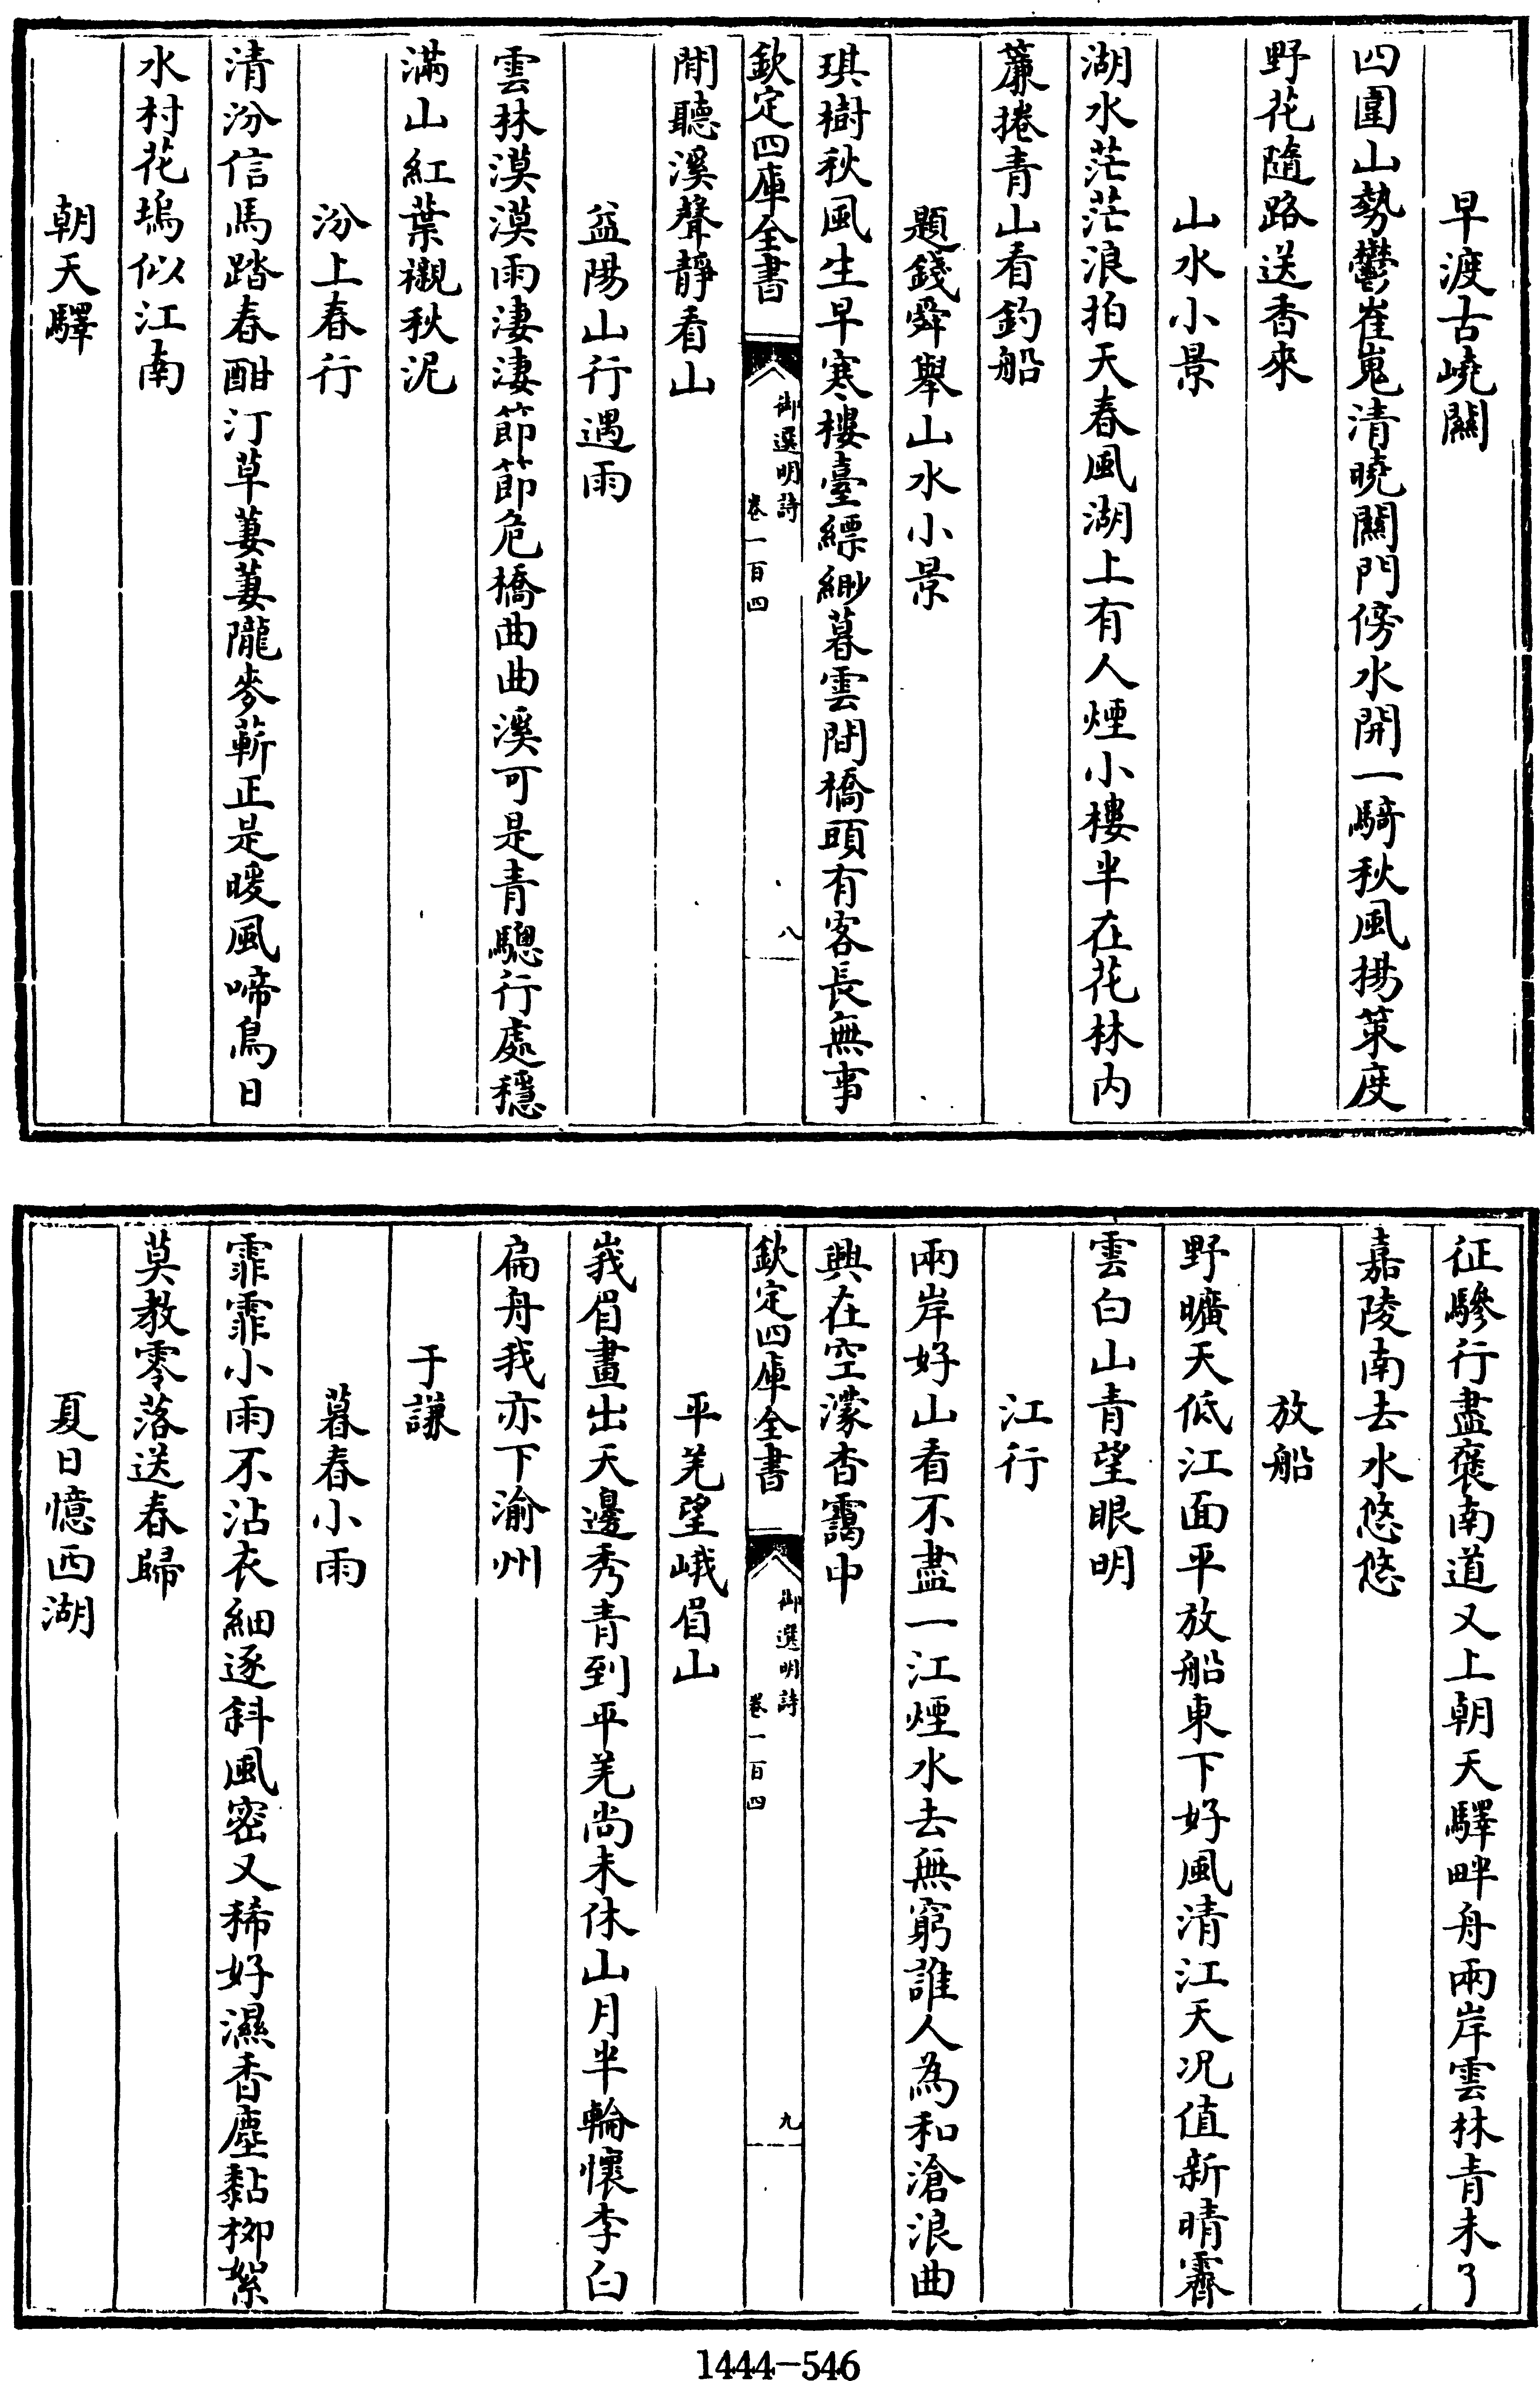 早渡古嶢關
四圍山勢鬱崔嵬清曉關門傍水開一騎秋風揚策度
野花隨路送香來
山水小景
湖水茫茫浪拍天春風湖上有人煙小樓半在花林内
簾捲青山看釣船
題錢舜舉山水小景
琪樹秋風生早寒樓臺縹緲暮雲間橋頭有客長無事
欽定四庫全書
御選明詩
卷一百四
八
閒聽溪聲靜看山
益陽山行遇雨
雲林漠漠雨淒淒節節危橋曲曲溪可是青驄行處穩
滿山紅葉襯秋泥
汾上春行
清汾信馬踏春酣汀草萋萋隴麥蔪正是暖風啼鳥日
水村花塢似江南
朝天驛
征驂行盡褒南道又上朝天驛畔舟兩岸雲林青未了
嘉陵南去水悠悠
放船
野曠天低江面平放船東下好風清江天况值新晴霽
雲白山青望眼明
江行
兩岸好山看不盡一江煙水去無窮誰人為和滄浪曲
興在空濛杳靄中
欽定四庫全書
御選明詩
卷一百四
九
平羌望峨眉山
峩眉畫出天邊秀青到平羌尚未休山月半輪懷李白
扁舟我亦下渝州
于謙
暮春小雨
霏霏小雨不沾衣細逐斜風密又稀好濕香塵黏柳絮
莫教零落送春歸
夏日憶西湖
1444-546